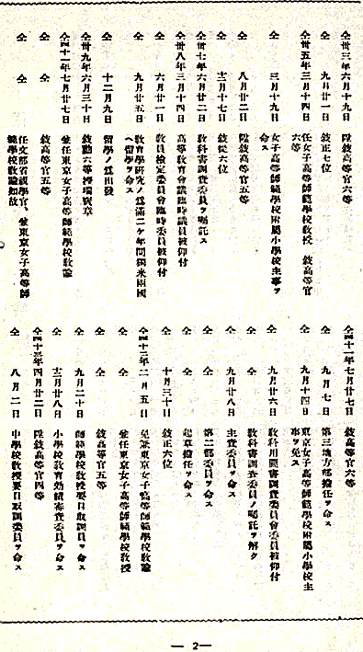 仝卅三年六月十九日 陞敍高等官六等
仝 九月廿一日 敍正七位
仝卅五年三月十四日 任女子高等師範學校敎授 敍高等官
六等
仝 三月十九日 女子高等師範學校附屬小學校主事ヲ
命ス
仝 八月廿二日 陞敍高等官五等
仝 十二月十七日 敍從六位
仝卅七年六月廿二日 敎科書調査委員ヲ囑託ス
仝卅八年三月十四日 高等敎育會議臨時議員被仰付
仝 六月廿一日 敎員檢定會臨時委員被仰付
仝 九月廿五日 敎育學硏究ノ爲滿二ケ年間獨米兩國
ヘ留學ヲ命ス
仝 十二月九日 留學ノ爲出發
仝卅九年六月三十日 敍勳六等授瑞寶章
仝四十一年七月廿七日 兼任東京女子高等師範學校敎諭
仝 仝 敍高等官五等
仝 仝 任文部省視學官、兼東京女子高等師
範學校敎諭如故
仝四十一年七月廿七日 敍高等官六等
仝 九月七日 第三地方部擔任ヲ命ス
仝 九月十四日 東京女子高等師範學校附屬小學校主
事ヲ免ス
仝 九月廿六日 敎科用圖書調査委員會委員被仰付
仝 仝 敎科書調査委員ノ囑託ヲ解ク
仝 九月廿八日 主査委員ヲ命ス
仝 仝 第二部委員ヲ命ス
仝 仝 起草擔任ヲ命ス
仝 十月三十日 敍正六位
仝四十二年二月五日 免兼東京女子高等師範學校敎諭
仝 仝 兼任東京女子高等師範學校敎授
仝 仝 敍高等官五等
仝 九月二十日 師範學校敎授要目取調員ヲ命ス
仝 十二月廿八日 小學校敎育効績審査委員ヲ命ス
仝四十三年四月廿二日 陞敍高等官四等
仝 八月二日 中學校敎授要目取調委員ヲ命ス
— 2 —